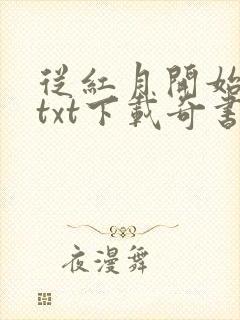 從紅月開始
txt下載奇書
夜漫舞